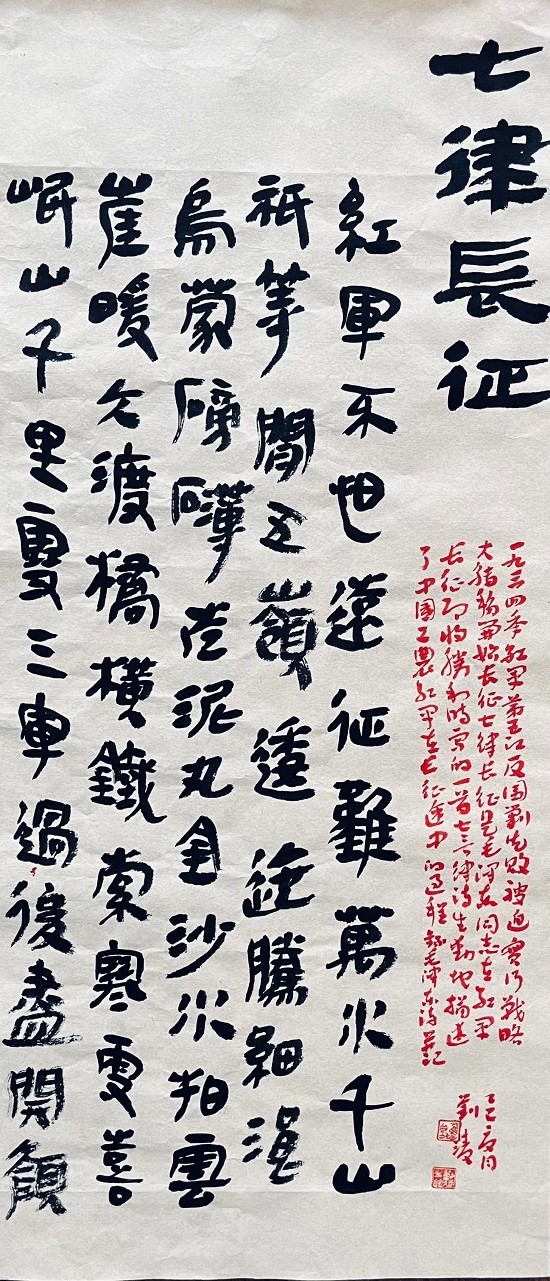 七律長征
一九三四年紅軍第五次反围剿失敗被迫實行戰略
大轉移開始長征七律長征是毛澤東同志在紅軍
長征即将勝利時寫的一首七言律詩生動地描述
了中國工農紅軍在長征途中的过程 錄毛澤東詩并記
乙巳夏月
紅軍不怕遠征難萬水千山
祇等閒五嶺逶迤騰細浪
烏蒙磅礴走泥丸金沙水拍雲
崖暖大渡橋橫鐵索寒更喜
岷山千里雪三軍過後盡開顏